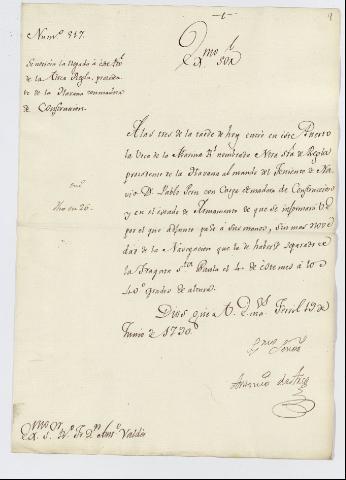 Num.º 317.
Exmo Sor
Se noticia la llegada à este Prto
de la Urca Regla, proceda
de de la Havana con madera
de Construccion.
A las tres de la tarde de hoy entró en este Puerto
la Urca de la Marina Rl nombrada Ntra Sra de Regla
procedente de la Havana al mando del Teniente de Na
vio D. Pablo con Carga de madera de Construccion
y en el estado de Armamento de que se informará VE
por el que adjunto paso a sus manos, sin mas nove
dad de la Navegacion que la de haberse separado de
la Fragata Sta Paula el 4. de este mes à los
40.º grados de altura.
Dios gue a V.E. ms as Ferrol 13 de
Junio de 1790.
Exmo Sor
Antonio de Arce
Exmo Sor Bº Fr. Dn Antº Valdés